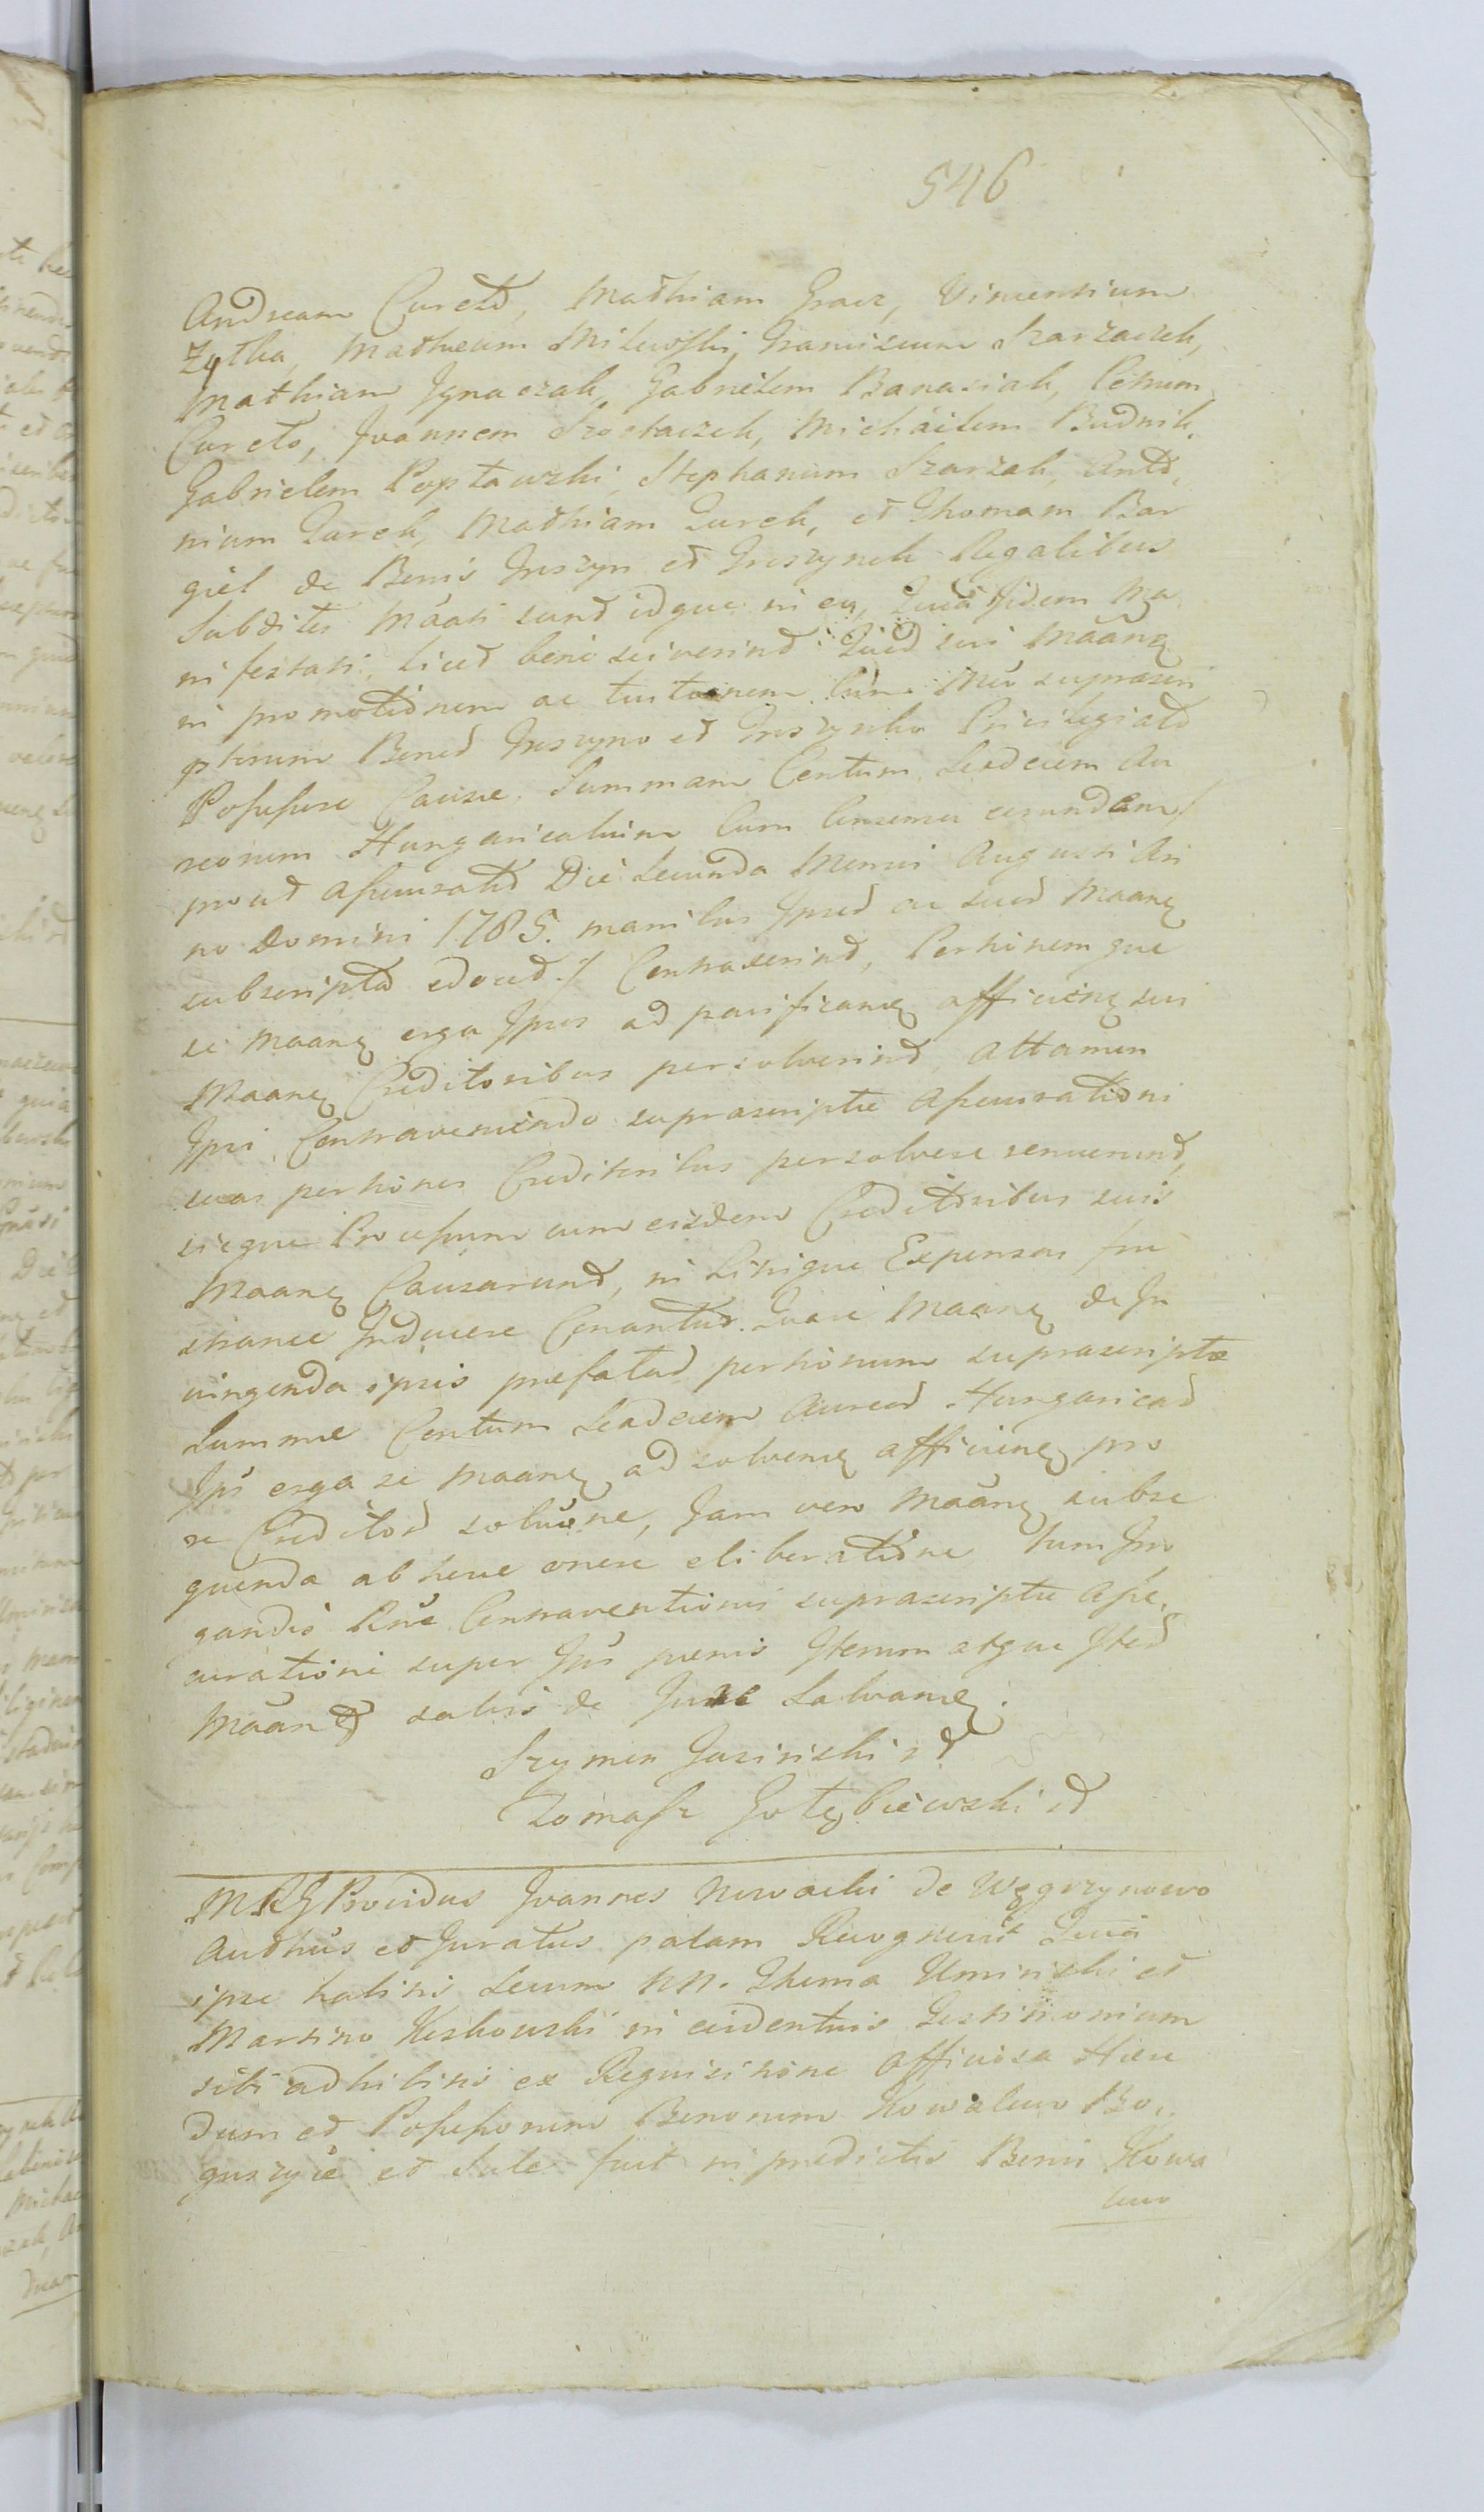 546
Andream Curcto, Mathiam Gracz, Vincensium
Zytka, Matheum Milewski, Franciscum Szarzaczek,
Mathiam Jgnaczak, Gabrielem Banasiak, Petrum
Curcto, Joannem Szostaczek, Michaelem Budnik,
Gabrielem Popławski, Stephanum Szarzak, Anto,
nium Turek, Mathiam Turek, et Thomam Bar
giel de Bonis Jnszyn et Jnszynek Regalibus
Subditis Maati sunt idque in eo, Quia Jidem Ma
nifestati, licet bene sciverint Quod sui Maane
in promotionem ac tuitionem Cum suprascri
ptorum Bonod Jnszyno et Jnszynko Privilegiato
Possessore Causae Summam Centum Sedecim Au
reorum Hungaricalium Cum Censemu eorundem
prout Assecuratio Die Secunda Mensis Augusti An
no Domini 1785. manibus Jpsod ac suod Maane
subscripta edocet / Contraxerint, Pertinemque
se Maane erga Jpsos ad pacificane officiene sui
Maane Creditoribus persolverint, attamen
Jpsi Contraveniendo suprascriptae Assecurationi
suas portiones Creditoribus persolvere renuerunt,
sicque Processum cum eisdem Creditoribus suis
Maane Causarunt, in Litisque Expensas fru
straneae Jnducere Conantur. Quare Maane de Jn
iungenda ipsis praefatad portionum suprascriptae
Summae Centum Sedecim Aureod Hungaricad
Jpis erga se Maane ad solvene officiene pro
se Creditod solutione, Jam vero Maane subse
quenda ab hocce onere eliberatione tum Jrro
gandis Rne Contraventionis suprascriptae Asse,
curationi super Jpis poenis Jterum atque Jted
Maane salvis de Jure Salvane.
Szymon Jasinski sd
Tomasz Gołębiewski sd
MRG Providus Joannes Nowacki de Węgrzynowo
Authus et Juratus palam Recognovit Quia
ipse habitis secum NN. Thoma Uminski et
Martino Koskowski in evidentius Testimonium
sibi adhibitis ex Requisitione officiosa Haere
dum et Possessorum Bonorum Kowalewo Bo,
guszyce et Sule fuit in praedictis Bonis Kowa
lewo